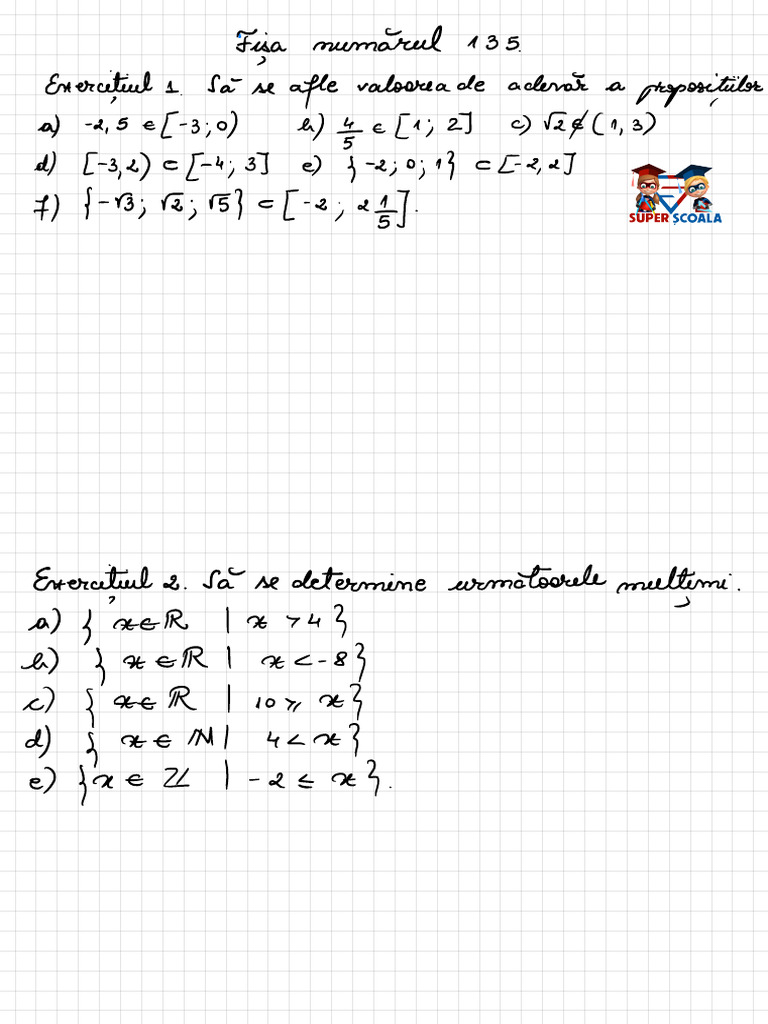 Fișa numărul 135.
Exercițiul 1. Să se afle valoarea de adevăr a propozițiilor
a) -2,5 ∈ [-3; 0) b) 4/5 ∈ [1; 2] c) √2 ∉ (1, 3)
d) [-3, 2) ⊂ [-4; 3] e) {-2; 0; 1} ⊂ [-2, 2]
f) {-√3; √2; √5} ⊂ [-2; 2 1/5].
SUPER ȘCOALA
Exercițiul 2. Să se determine următoarele mulțimi.
a) { x ∈ ℝ | x > 4 }
b) { x ∈ ℝ | x < -8 }
c) { x ∈ ℝ | 10 ⩾ x }
d) { x ∈ ℕ | 4 < x }
e) { x ∈ ℤ | -2 ≤ x }.